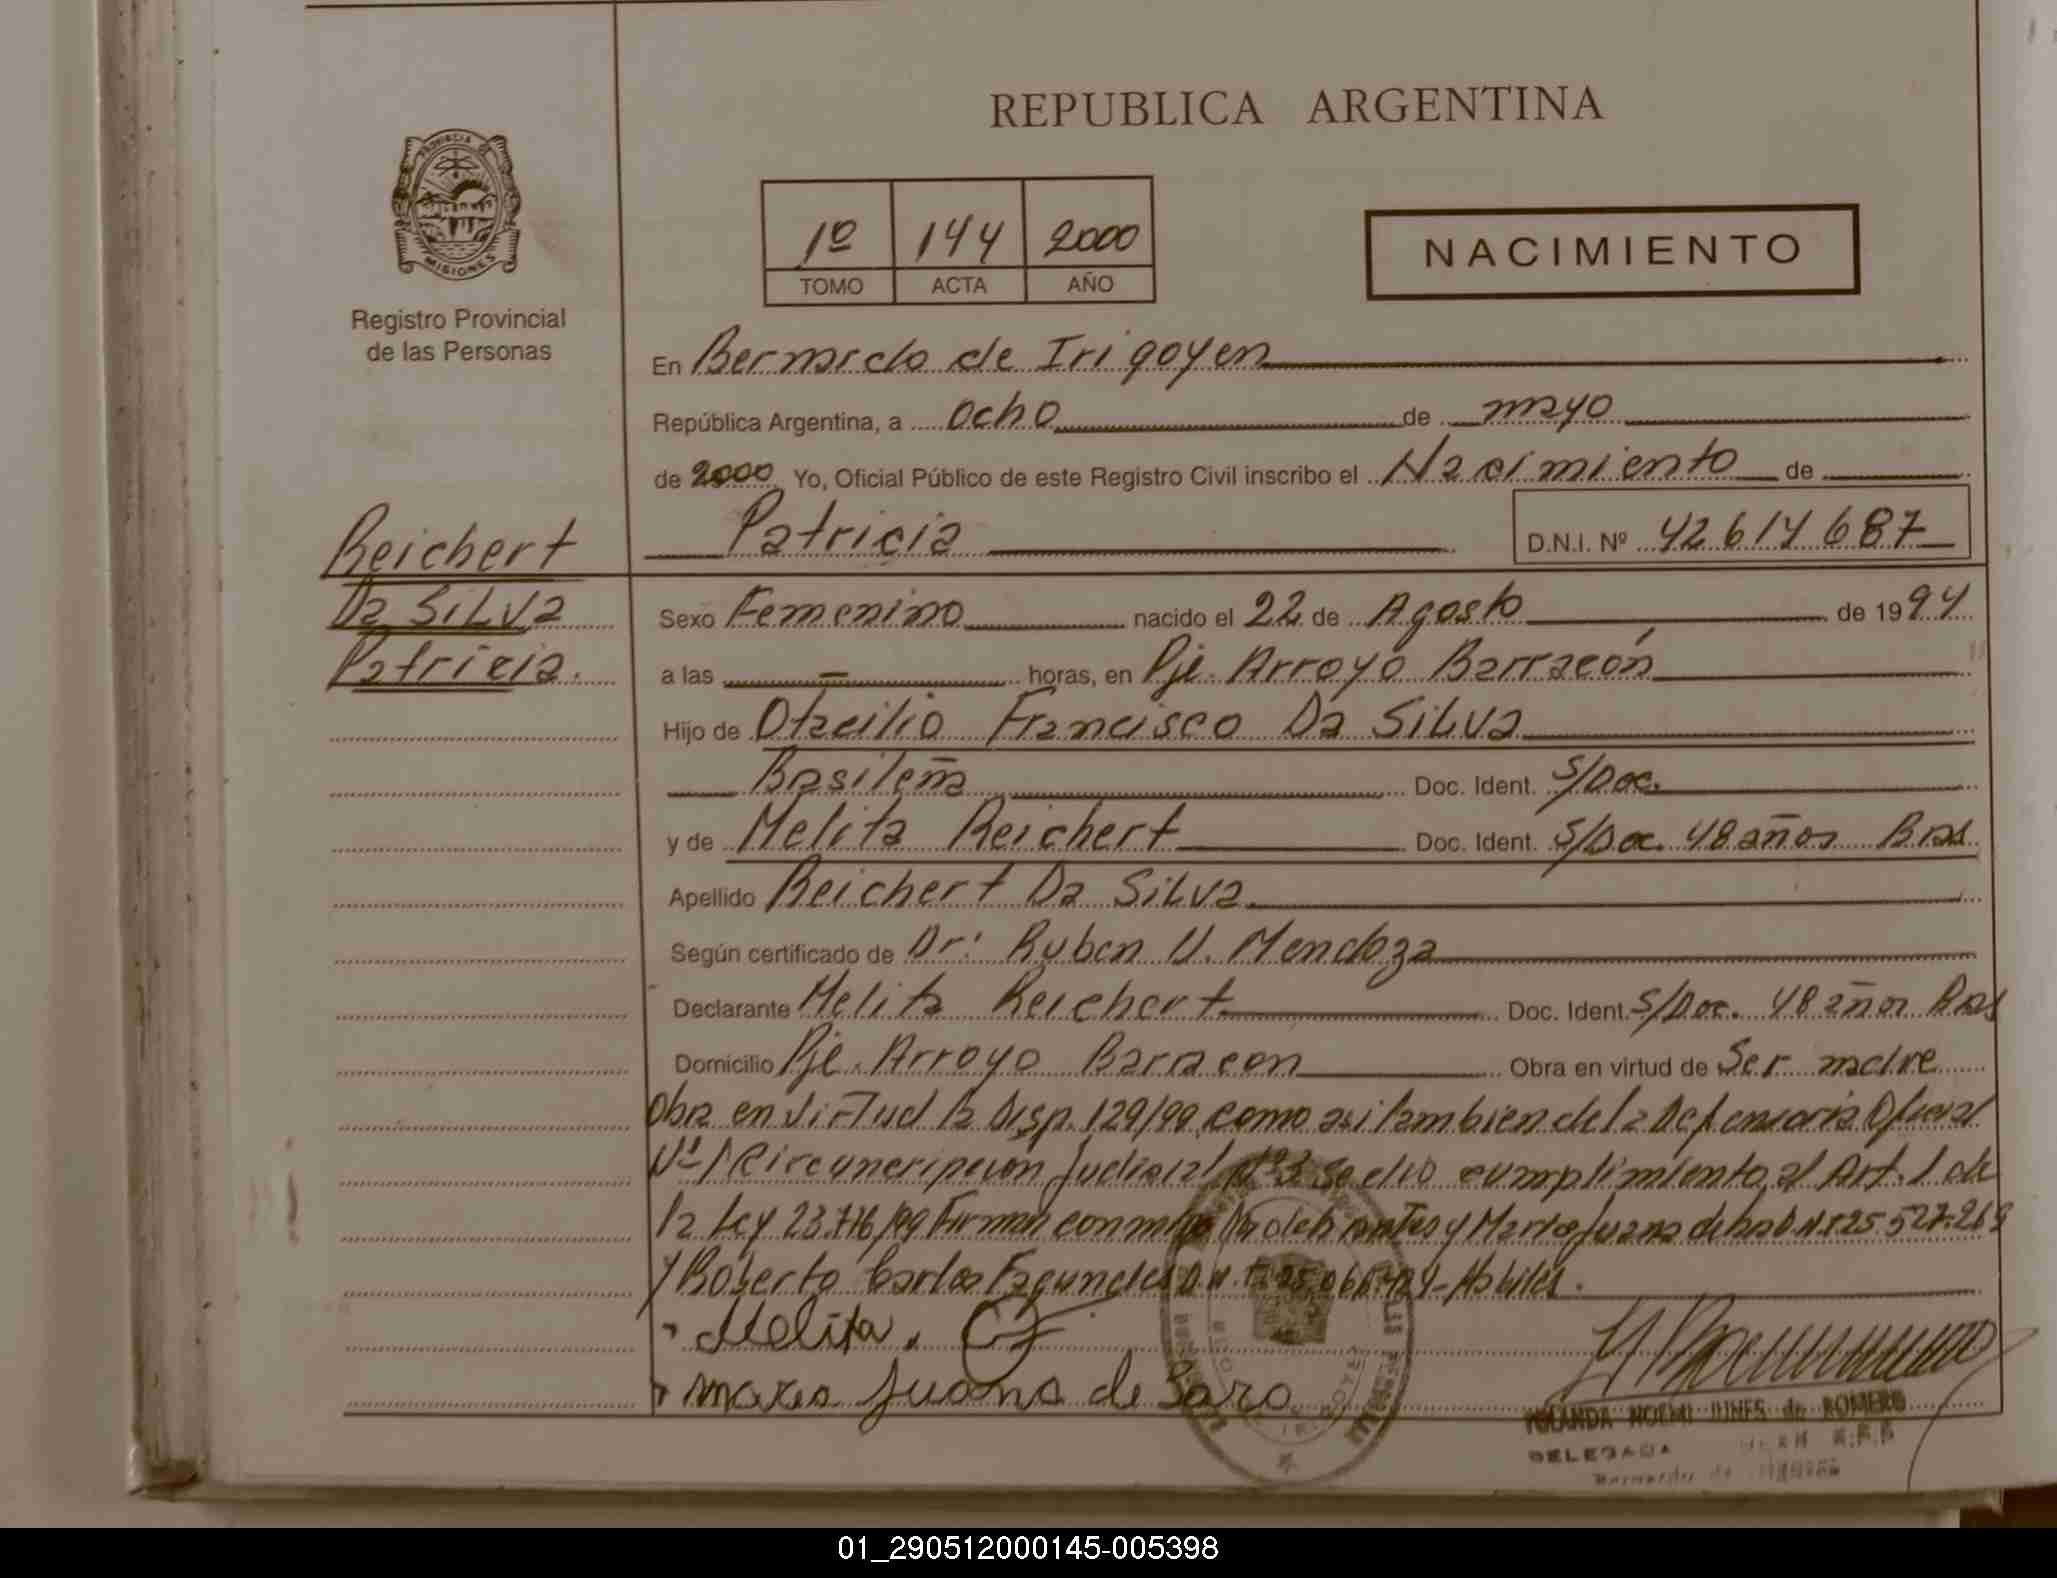 REPUBLICA ARGENTINA
PROVINCIA DE
MISIONES
Registro Provincial
de las Personas
1º 144 2000
TOMO ACTA AÑO
NACIMIENTO
En Bernardo de Irigoyen
República Argentina, a ocho de mayo
de 2000 Yo, Oficial Público de este Registro Civil inscribo el Nacimiento de
Patricia D.N.I. Nº 42614687
Reichert
Da Silva
Patricia.
Sexo Femenino nacido el 22 de Agosto de 1994
a las - horas, en Pje. Arroyo Barracón
Hijo de Otacilio Francisco Da Silva
Basileña Doc. Ident. S/Doc.
y de Melita Reichert Doc. Ident. S/Doc. 48 años Bras
Apellido Reichert Da Silva
Según certificado de Dr: Ruben U. Mendoza
Declarante Melita Reichert Doc. Ident. S/Doc. 48 años Bras
Domicilio Pje. Arroyo Barracon Obra en virtud de Ser madre
Obra en virtud la Disp. 129/99 como asi tambien de la Defensoria Oficial
Nº 1 Circuncripcion Judicial Nº 3 Se dio cumplimiento al Art. 1 de
la Ley 23.776/99 Firman conmigo y Maria Juana de
y Roberto Carlos Fagundes Habiles.
Melita.
maria Juana de Zaro
YOLANDA NOEMI JUNES de ROMERO
DELEGADA
Bernardo de Irigoyen
01_290512000145-005398